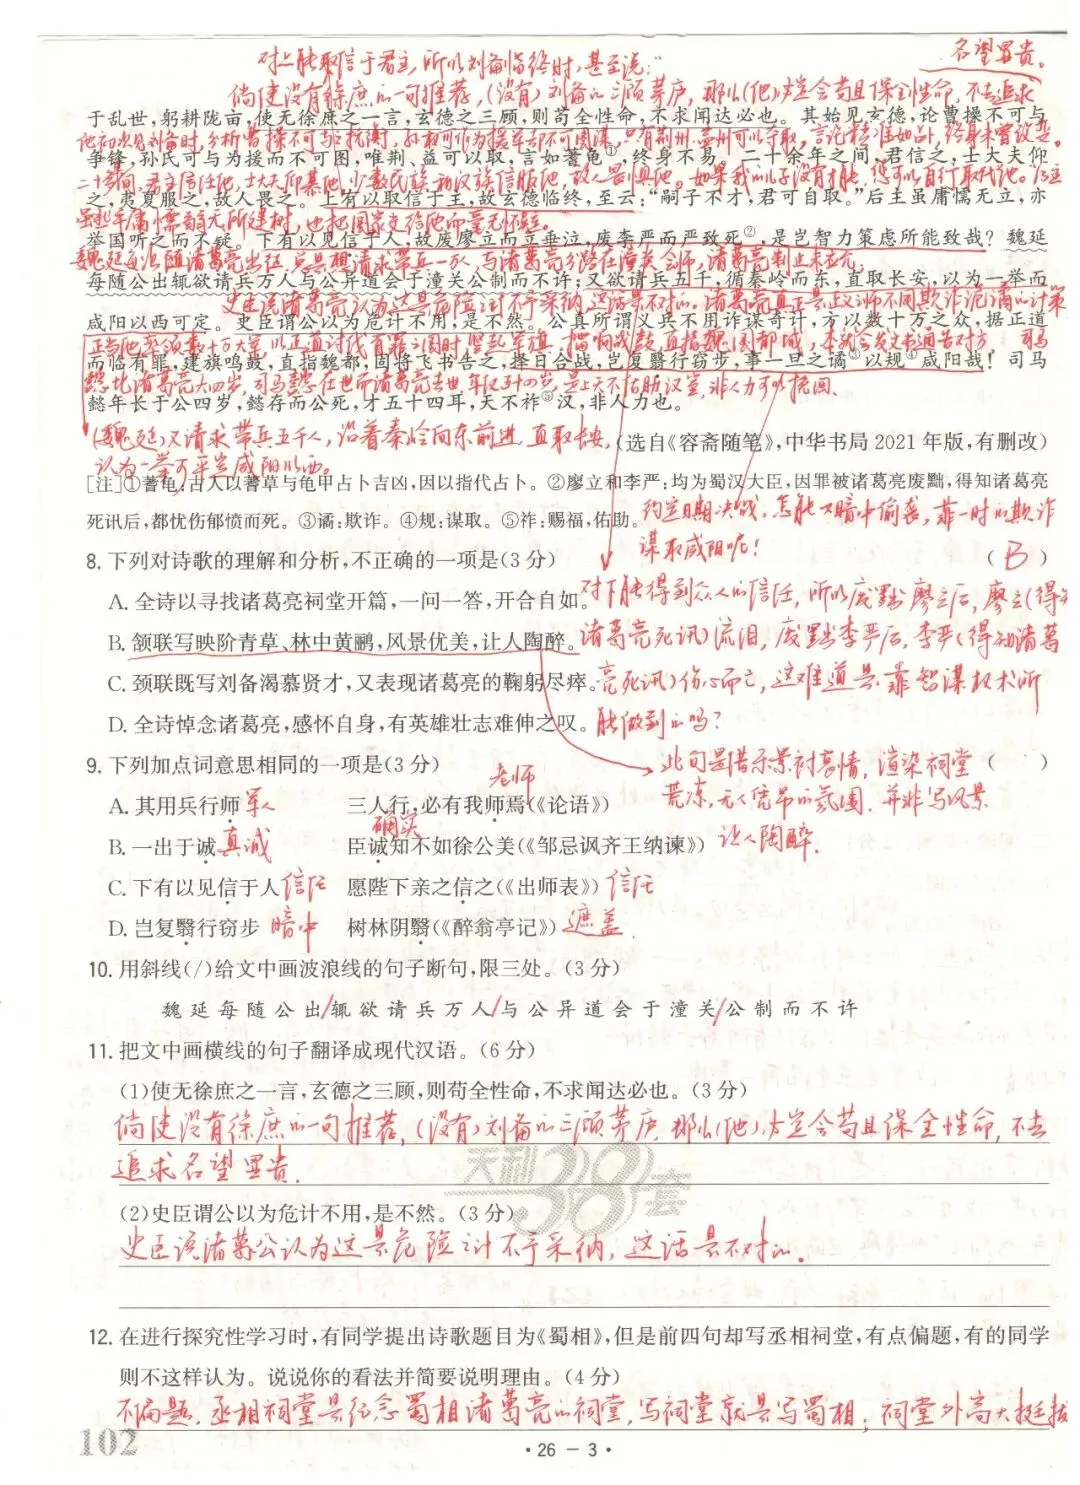 对上能取信于君主,所以刘备临终时,甚至说:“
名望富贵。
倘使没有徐庶的一句推荐,(没有)刘备的三顾茅庐,那么(他)必定会苟且保全性命,不去追求
于乱世,躬耕陇亩,使无徐庶之一言,玄德之三顾,则苟全性命,不求闻达必也。其始见玄德,论曹操不可与
他初次见刘备时,分析曹操不可与抗衡,孙权可作为援军却不可图谋,只有荆州、益州可以夺取,言论精准如占,终身未曾改变。
争锋,孙氏可与为援而不可图,唯荆、益可以取,言如蓍龟①,终身不易。二十余年之间,君信之,士大夫仰
二十多年间,君主信任他,士大夫仰慕他,少数民族和汉族信服他,敌人畏惧他。如果我的儿子没有才能,您可以自行取代他。后主
之,夷夏服之,敌人畏之。上有以取信于主,故玄德临终,至云:“嗣子不才,君可自取。”后主虽庸懦无立,亦
虽然平庸懦弱无所建树,也把国家交给他而毫不怀疑。
举国听之而不疑。下有以见信于人,故废廖立而立垂泣,废李严而严致死②,是岂智力策虑所能致哉?魏延
魏延每次随诸葛亮出征,总是想请求带兵一万人,与诸葛亮分路在潼关会师,诸葛亮制止未答允,
每随公出辄欲请兵万人与公异道会于潼关公制而不许;又欲请兵五千,循秦岭而东,直取长安,以为一举而
史臣说诸葛亮认为这是危险之计不予采纳,这话是不对的。诸葛亮真正是正义之师不用欺诈诡谲的计策
咸阳以西可定。史臣谓公以为危计不用,是不然。公真所谓义兵不用诈谋奇计,方以数十万之众,据正道
正当他率领数十万大军,以正道讨伐有罪之国时,竖起军旗,擂响战鼓,直指魏国都城,本就会发文书通告对方,司马
而临有罪,建旗鸣鼓,直指魏都,固将飞书告之,择日合战,岂复翳行窃步,事一旦之谲③以规④咸阳哉!司马
懿比诸葛亮大四岁,司马懿在世而诸葛亮去世,年仅五十四岁,是上天不佑助汉室,非人力可以挽回。
懿年长于公四岁,懿存而公死,才五十四耳,天不祚⑤汉,非人力也。
(魏延)又请求带兵五千人,沿着秦岭向东前进,直取长安,
(选自《容斋随笔》,中华书局2021年版,有删改)
认为一举可平定咸阳以西。
[注]①蓍龟:古人以蓍草与龟甲占卜吉凶,因以指代占卜。②廖立和李严:均为蜀汉大臣,因罪被诸葛亮废黜,得知诸葛亮
死讯后,都忧伤郁愤而死。③谲:欺诈。④规:谋取。⑤祚:赐福,佑助。
约定日期决战,怎能又暗中偷袭,靠一时的欺诈
谋取咸阳呢!
8. 下列对诗歌的理解和分析,不正确的一项是(3分) ( B )
A. 全诗以寻找诸葛亮祠堂开篇,一问一答,开合自如。
对下能得到众人的信任,所以废黜廖立后,廖立(得知
B. 颔联写映阶青草、林中黄鹂,风景优美,让人陶醉。
诸葛亮死讯)流泪,废黜李严后,李严(得知诸葛
C. 颈联既写刘备渴慕贤才,又表现诸葛亮的鞠躬尽瘁。
亮死讯)伤心而亡,这难道是靠智谋权术所
D. 全诗悼念诸葛亮,感怀自身,有英雄壮志难伸之叹。
能做到的吗?
9. 下列加点词意思相同的一项是(3分) ( )
此句是借乐景衬哀情,渲染祠堂
荒凉,无人凭吊的氛围,并非写风景
让人陶醉.
老师
A. 其用兵行师 军人 三人行,必有我师焉(《论语》)
确实
B. 一出于诚 真诚 臣诚知不如徐公美(《邹忌讽齐王纳谏》)
C. 下有以见信于人 信任 愿陛下亲之信之(《出师表》) 信任
D. 岂复翳行窃步 暗中 树林阴翳(《醉翁亭记》) 遮盖
10. 用斜线(/)给文中画波浪线的句子断句,限三处。(3分)
魏延每随公出/辄欲请兵万人/与公异道会于潼关/公制而不许
11. 把文中画横线的句子翻译成现代汉语。(6分)
(1)使无徐庶之一言,玄德之三顾,则苟全性命,不求闻达必也。(3分)
倘使没有徐庶的一句推荐,(没有)刘备的三顾茅庐,那么(他)必定会苟且保全性命,不去
追求名望富贵.
天利38套
(2)史臣谓公以为危计不用,是不然。(3分)
史臣说诸葛公认为这是危险之计不予采纳,这话是不对的。
12. 在进行探究性学习时,有同学提出诗歌题目为《蜀相》,但是前四句却写丞相祠堂,有点偏题,有的同学
则不这样认为。说说你的看法并简要说明理由。(4分)
不偏题.丞相祠堂是纪念蜀相诸葛亮的祠堂,写祠堂就是写蜀相;祠堂外高大挺拔
102
·26-3·